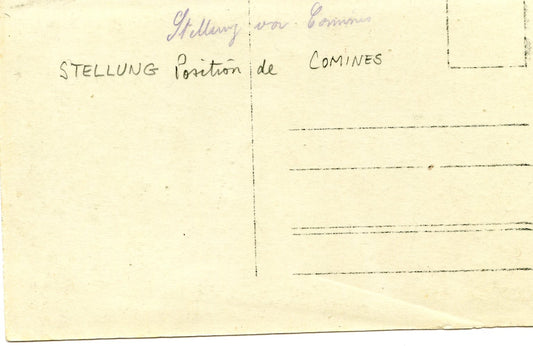 Stellung vor Comines
STELLUNG Position de COMINES